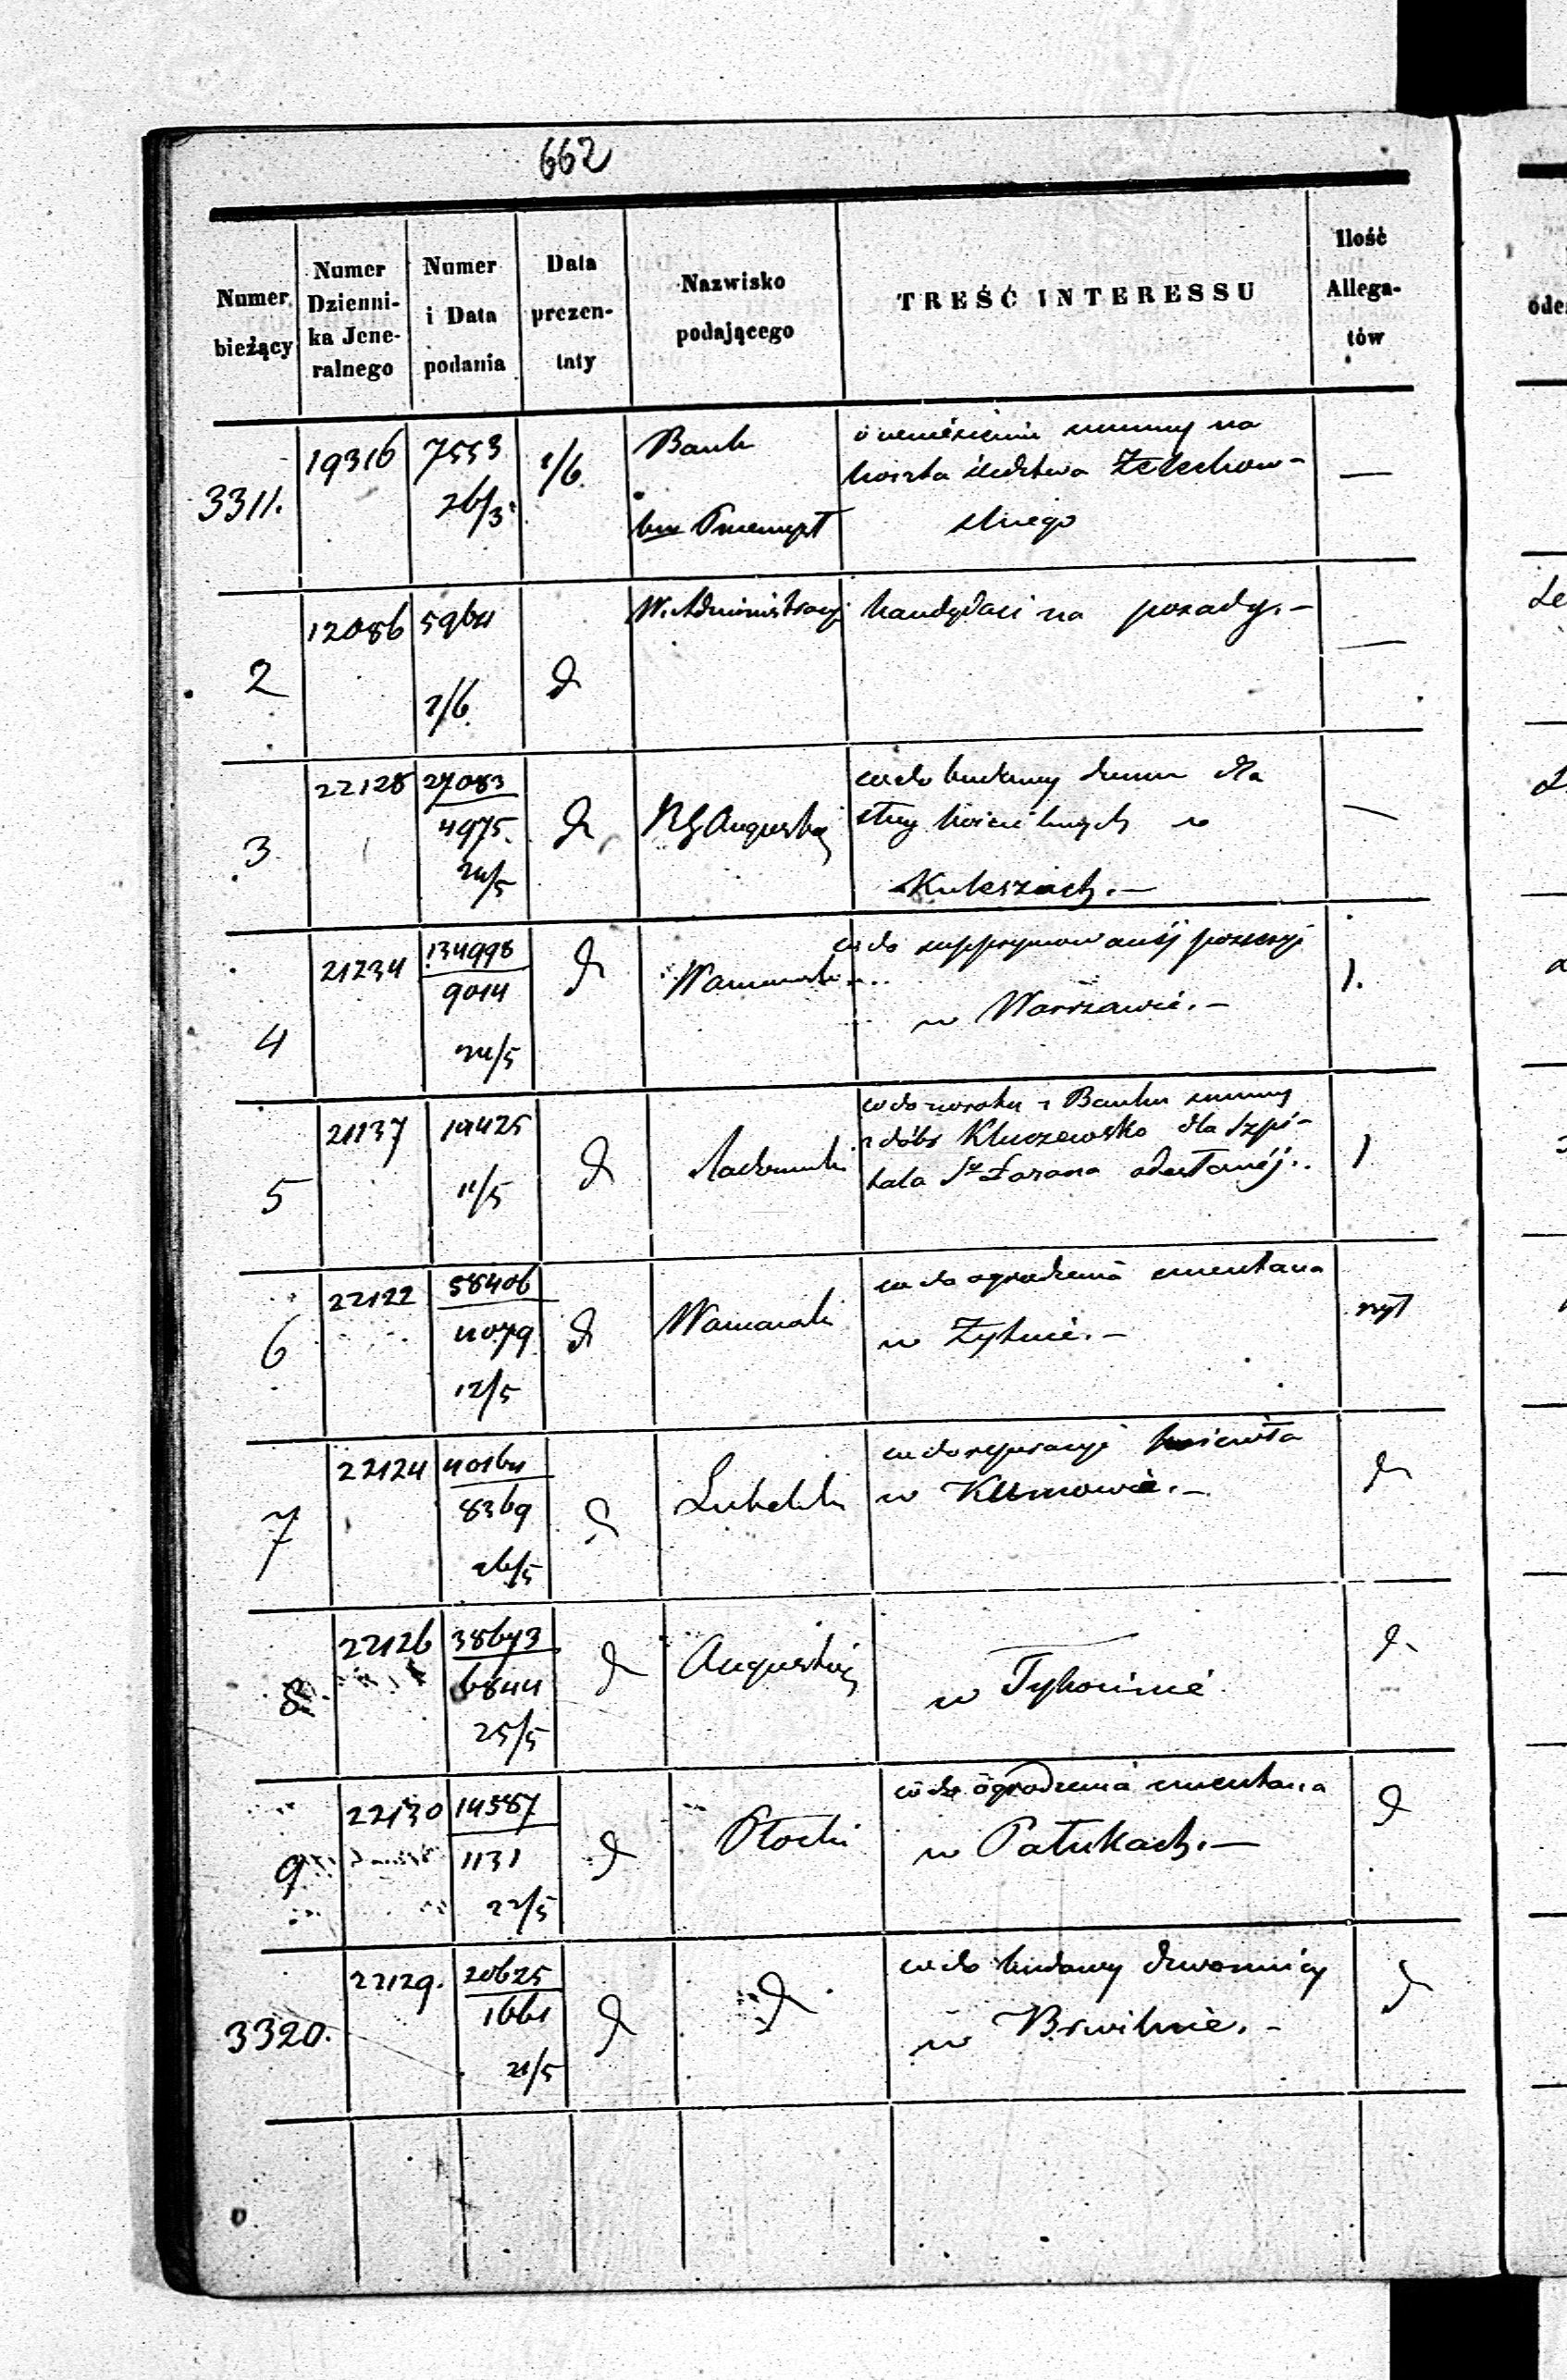 662
Numer bieżący | Numer Dziennika Jeneralnego | Numer i Data podania | Data prezentaty | Nazwisko podającego | TREŚĆ INTERESSU | Ilość Allegatów
3311. | 19316 | 7553 26/3 | 2/6 | Bank | summy na
koszta śledztwa Żelechow-
skiego | —
2 | 12086 | 5964 2/6 | d | W. Administracyj | kandydaci na posady.— | —
3 | 22128 | 27083 4975. 24/5 | d | RG Augustow | co do budowy domu dla
sług kościelnych w
Kuleszach.— | —
4 | 21234 | 134998 9014 24/5 | d | Warszawski | co do supprymowanéj possessyi
w Warszawie.— | 1.
5 | 21137 | 19425 11/5 | d | Radomski | co do zwrotu z Banku summy
z dóbr Kluczewsko dla Szpi-
tala Sgo Łazarza odesłanéj.. | 1
6 | 22122 | 58406 11079 12/5 | d | Warszawski | co do ogrodzenia cmentarza
w Żytnie.— | szyt
7 | 22124 | 40164 8369 26/5 | d | Lubelski | co do reparacyi kościoła
w Kumowie.— | d
8 | 22126 | 38673 6844 25/5 | d | Augustow | —
w Tykocinie | d
9 | 22130 | 14587 1131 22/5 | d | Płocki | co do ogrodzenia cmentarza
w Pałukach.— | d
3320. | 22129. | 20625 1661 21/5 | d | d | co do budowy dzwonnicy
w Brwilnie.— | d